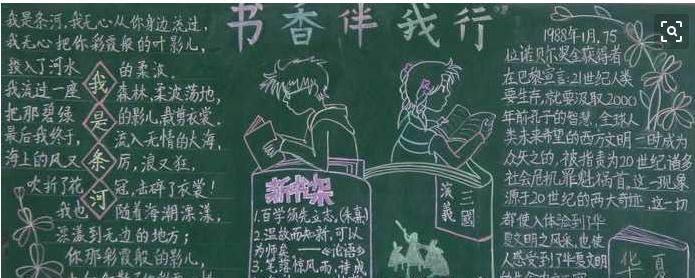 书香伴我行
我是条河,我无心从你身边流过,
我无心把你彩霞般的叶影儿,
投入了河水的柔波.
我流过一座森林,柔波荡地,
把那碧绿的影儿,裁剪衣裳.
最后我终于,流入无情的大海,
海上的风又厉,浪又狂,
吹折了花冠,击碎了衣裳!
我也随着海潮漂漾,
漂漾到无边的地方;
你那彩霞般的影儿,
我是条河
新书架
1.百学须先立志,(朱熹)
2.温故而知新,可以
为师矣——《论语》
3.笔落惊风雨,诗成
三國
演義
1988年1月,75
位诺贝尔奖金获得者
在巴黎宣言:21世纪人类
要生存,就要汲取2000
年前孔子的智慧.全球人
类未来希望的西方文明一时成为
众矢之的,被指责为20世纪诸多
社会危机罪魁祸首,这一现象
源于20世纪的两大奇迹,这一切
都使人体验到了华
夏文明之风采,也使
人感受到了华夏文明